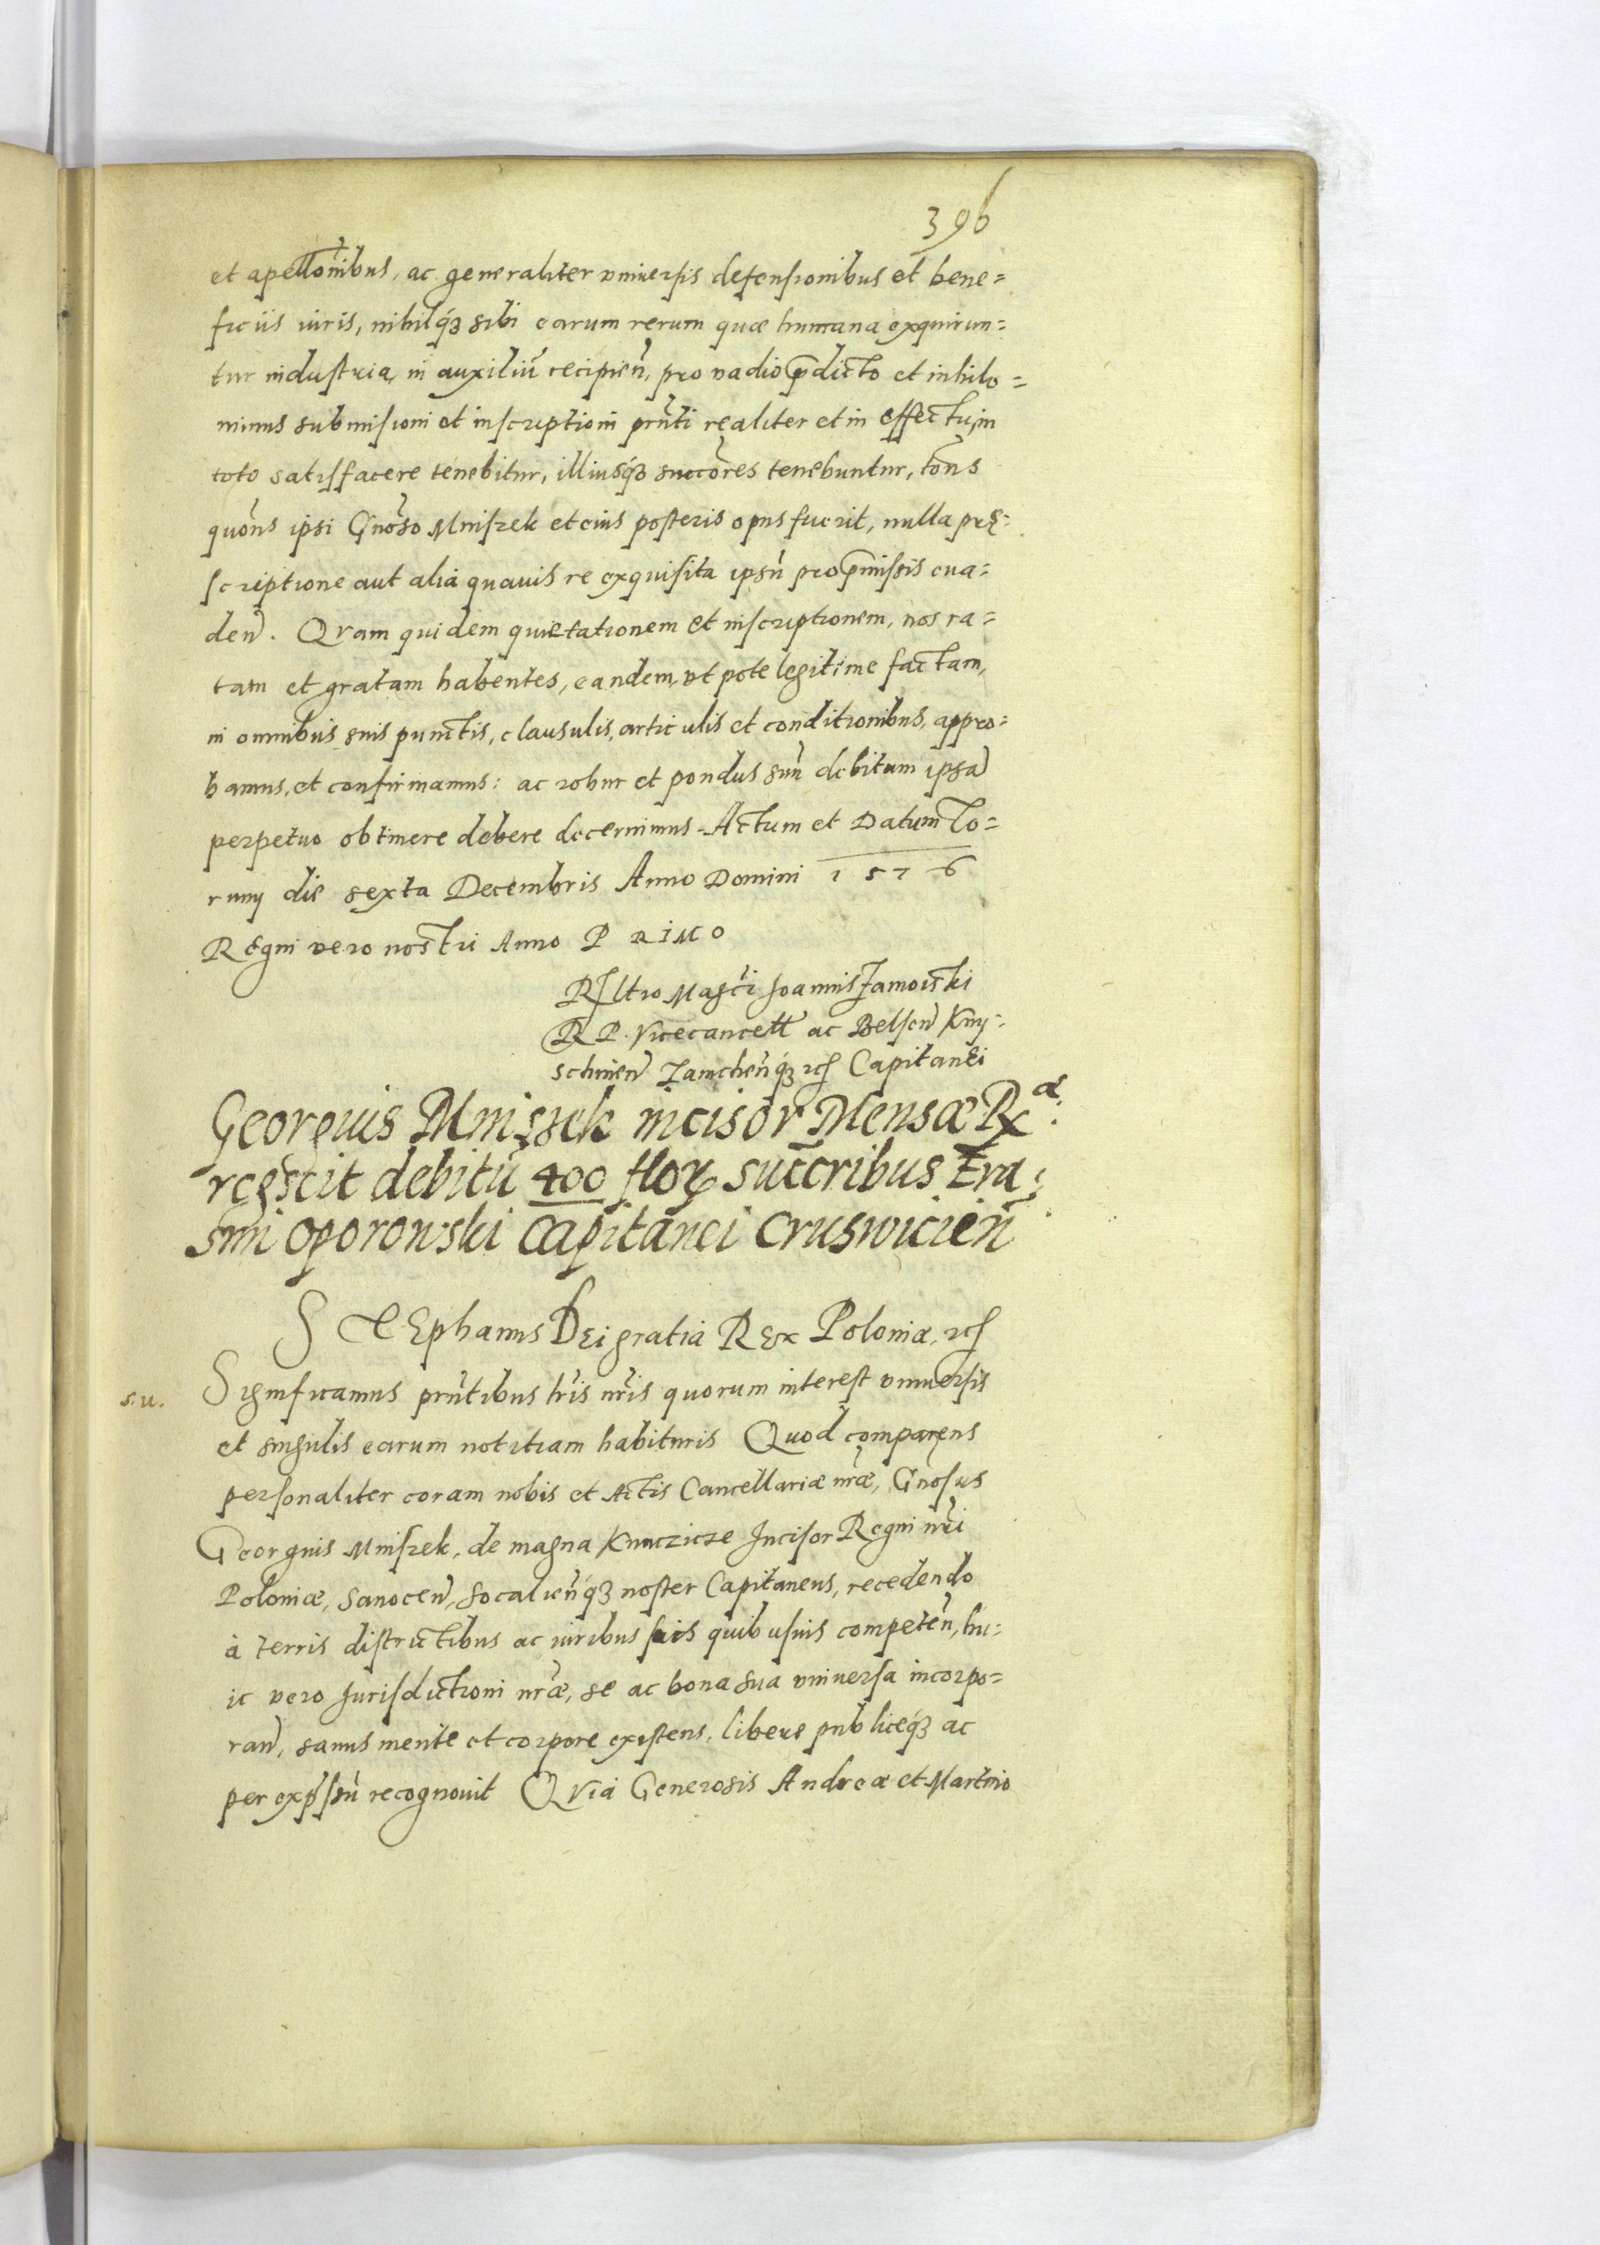 396
et apellōnibus, ac generaliter vniuersis defensionibus et bene=
ficiis iuris, nihilq́ʒ sibi earum rerum quæ humana exquirun=
tur industria, in auxiliū recipien̄, pro vadio p̄dicto et nihilo=
minus submisioni et inscriptioni prn̄ti realiter et in effectu, in
toto satisfacere tenebitur, illiusq́ʒ succōres tenebuntur, tōns
quōns ipsi Gnōso Mniszek et eius posteris opus fuerit, nulla prę=
scriptione aut alia quauis re exquisita ipsū pro p̄missis eua=
den̄. Qvam quidem quietationem et inscriptionem, nos ra=
tam et gratam habentes, eandem, vt pote legitime factam,
in omnibus suis punctis, clausulis, articulis et conditionibus, appro=
bamus, et confirmamus: ac robur et pondus suū debitum ipsā
perpetuo obtinere debere decernimus. Actum et Datum To=
runij die sexta Decembris Anno Domini 1576
Regni vero nostri Anno PRIMO
Rltio Magći Joannis Zamoiski
R P. Vicecancell ac Belsen̄ Kny=
schinen̄ Zamchen̄q́ʒ etc Capitanei
Georgius Mniszek incisor Mensæ Rᵃ:
rcgscit debitū 400 flor succribus Era=
smi Oporowski Capitanei Cruswicien̄
STEphanus DEi gratia REx Poloniæ, etc
s. u. Significamus prn̄tibus lrīs nrīs quorum interest vniuersis
et singulis earum notitiam habituris Quod comparens
personaliter coram nobis et Actis Cancellariæ nrǣ, Gnōsus
Georgius Mniszek, de magna Kunczicze Incisor Regni nrī
Poloniæ, Sanocen̄, Socalien̄q́ʒ noster Capitaneus, recedendo
à terris districtibus ac iuribus suis quibusuis competen̄, hu=
ic vero Jurisdictioni nrǣ, se ac bona sua vniuersa incorpo=
ran̄, sanus mente et corpore existens, libere publiceq́ʒ ac
per exp̄ssū recognouit QVia Generosis Andreæ et Martino